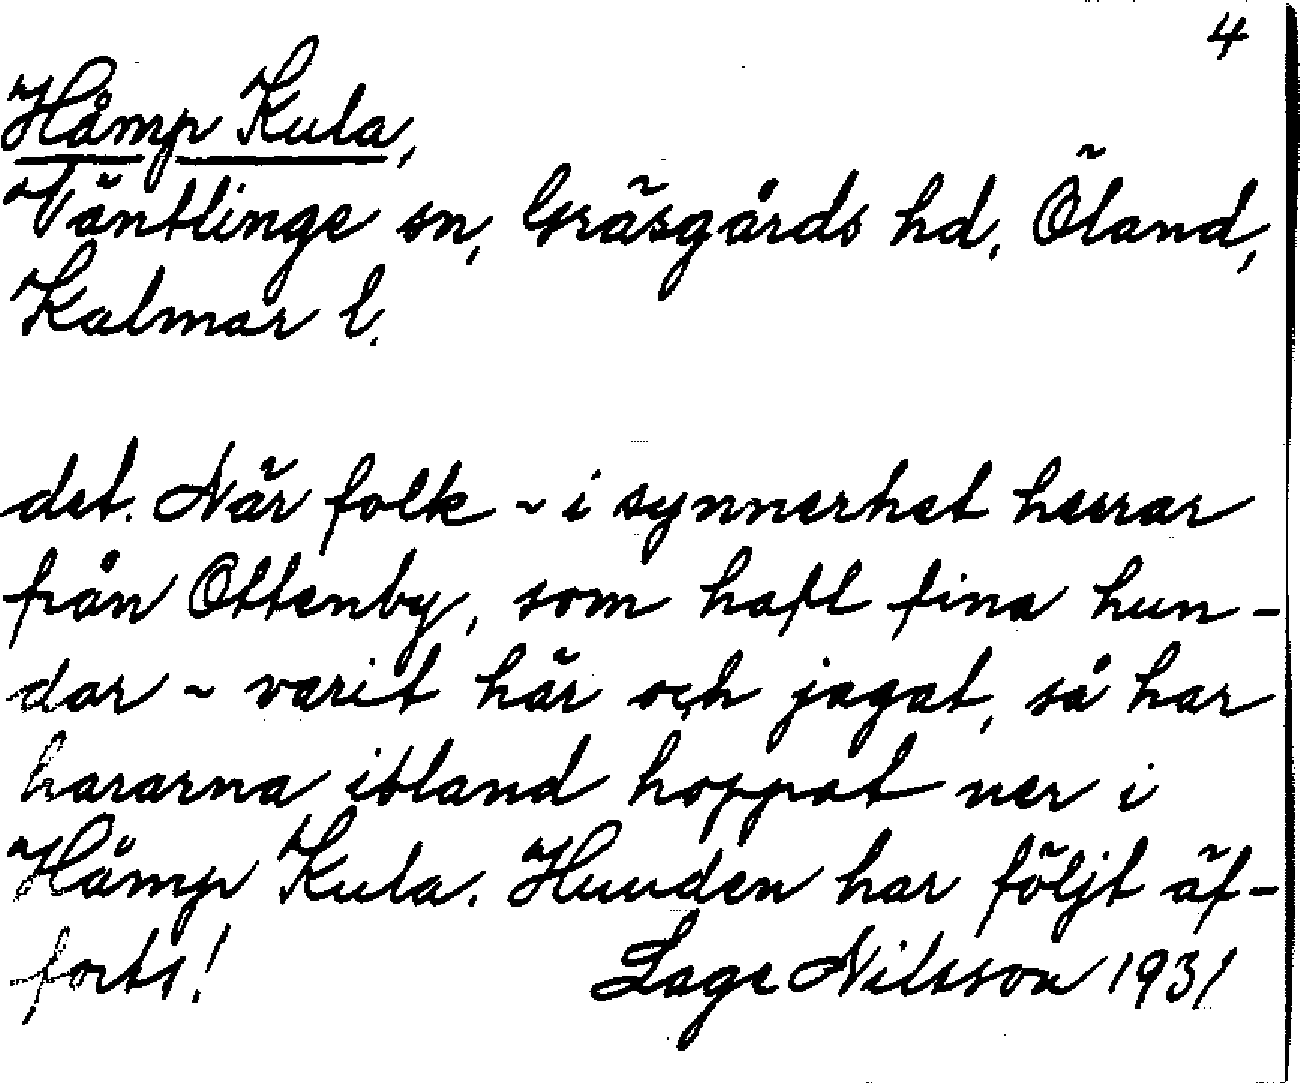 4
Håmp Kula,
Väntlinge sn, Gräsgårds hd, Öland,
Kalmar l.
det. När folk ~ i synnerhet herrar
från Ottenby, som haft fina hun-
dar ~ varit här och jagat, så har
hararna ibland hoppat ner i
Håmp Kula. Hunden har följt äf-
forts! Lage Nilsson 1931